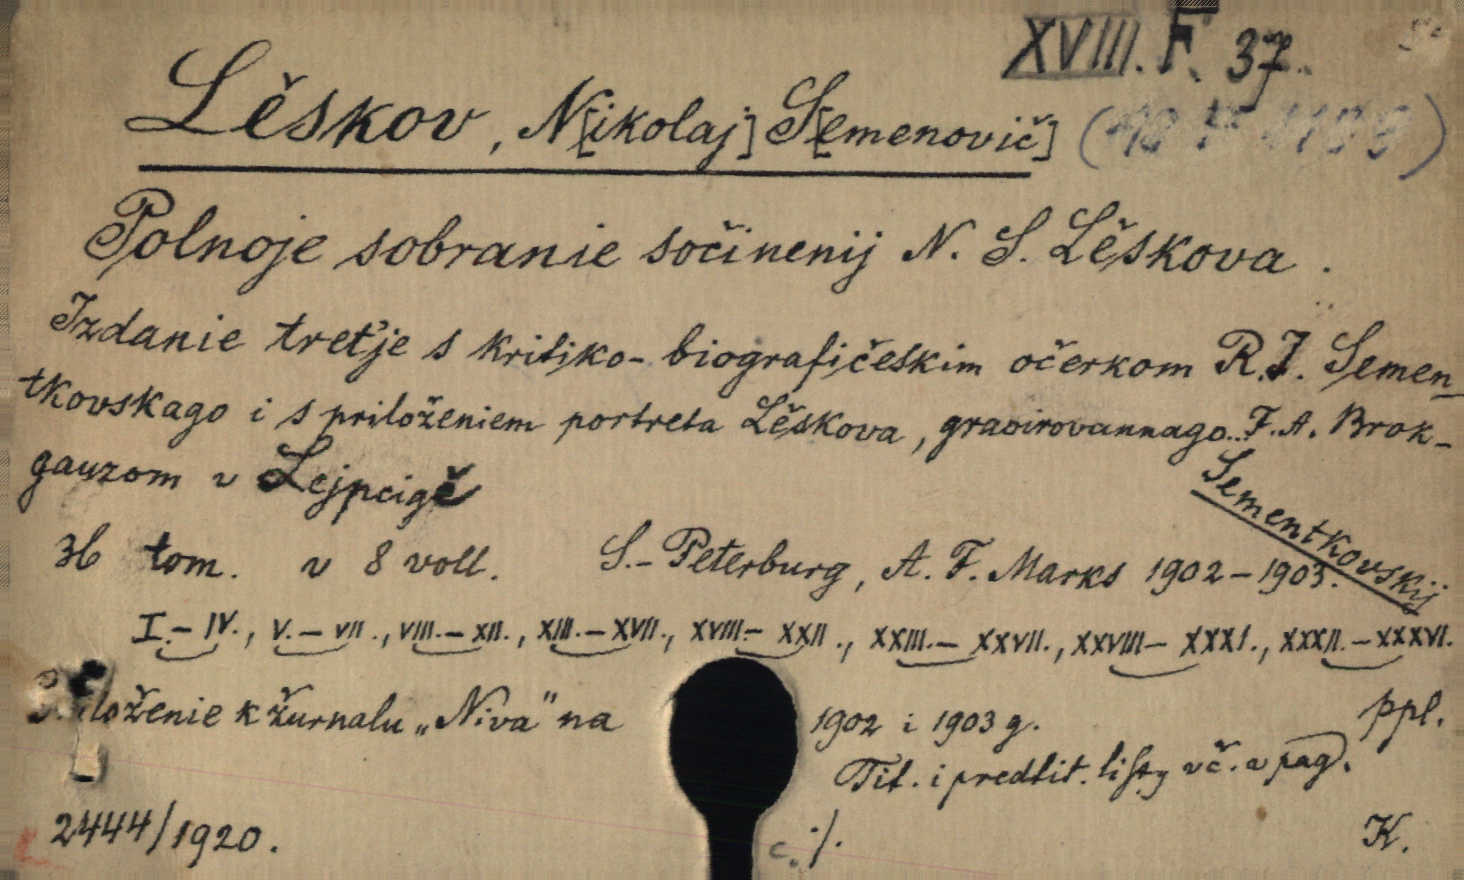 XVIII. F. 37.
Lěskov, N[ikolaj] S[emenovič]
Polnoje sobranie sočinenij N. S. Lěskova.
Izdanie treťje s kritiko-biografičeskim očerkom R. I. Semen-
tkovskago i s priloženiem portreta Lěskova, gravirovannago F. A. Brok-
gauzom v Lejpcigě
Sementkovskij
36 tom. v 8 voll. S.-Peterburg, A. F. Marks 1902-1903.
I.-IV., V.-VII., VIII.-XII., XIII.-XVII., XVIII-XXII., XXIII.-XXVII., XXVIII-XXXI., XXXII.-XXXVI.
loženie k žurnalu „Niva" na 1902 i 1903 g. ppl.
Tit. i predtit. listy v č. v pag.
2444/1920. c. ./. K.